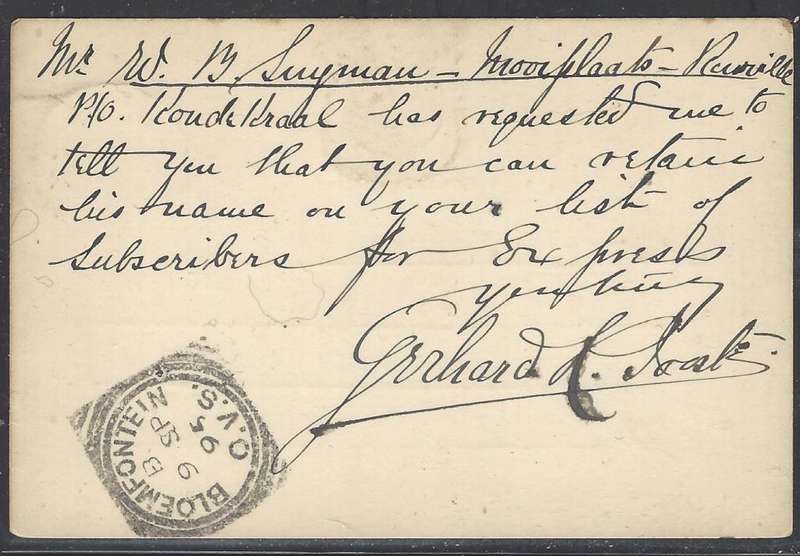 Mr W. B. Snyman – Mooiplaats – Rouxville
P/O. RondeKraal has requested me to
tell you that you can retain
his name on your list of
Subscribers for Express
Yours truly
Gerhard L. Jooste.
BLOEMFONTEIN
B
9 SP
95
O.V.S.